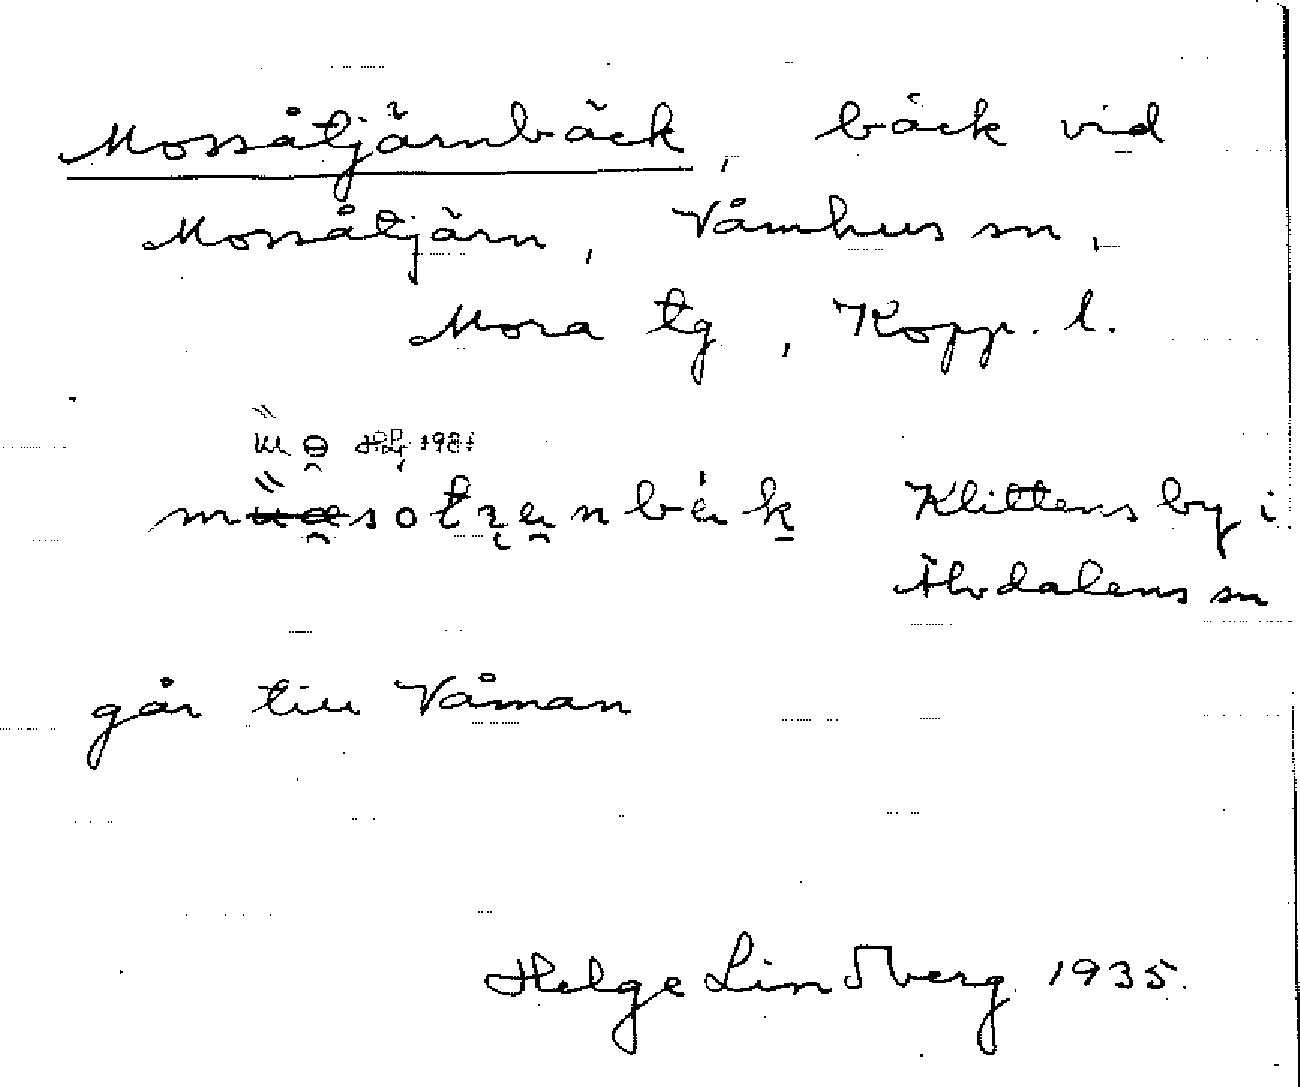 Mossåtjärnbäck, bäck vid
Mossåtjärn, Våmhus sn,
Mora tg, Kopp. l.
1981
Klittens by i
Älvdalens sn
går till Våman
Helge Lindberg 1935.